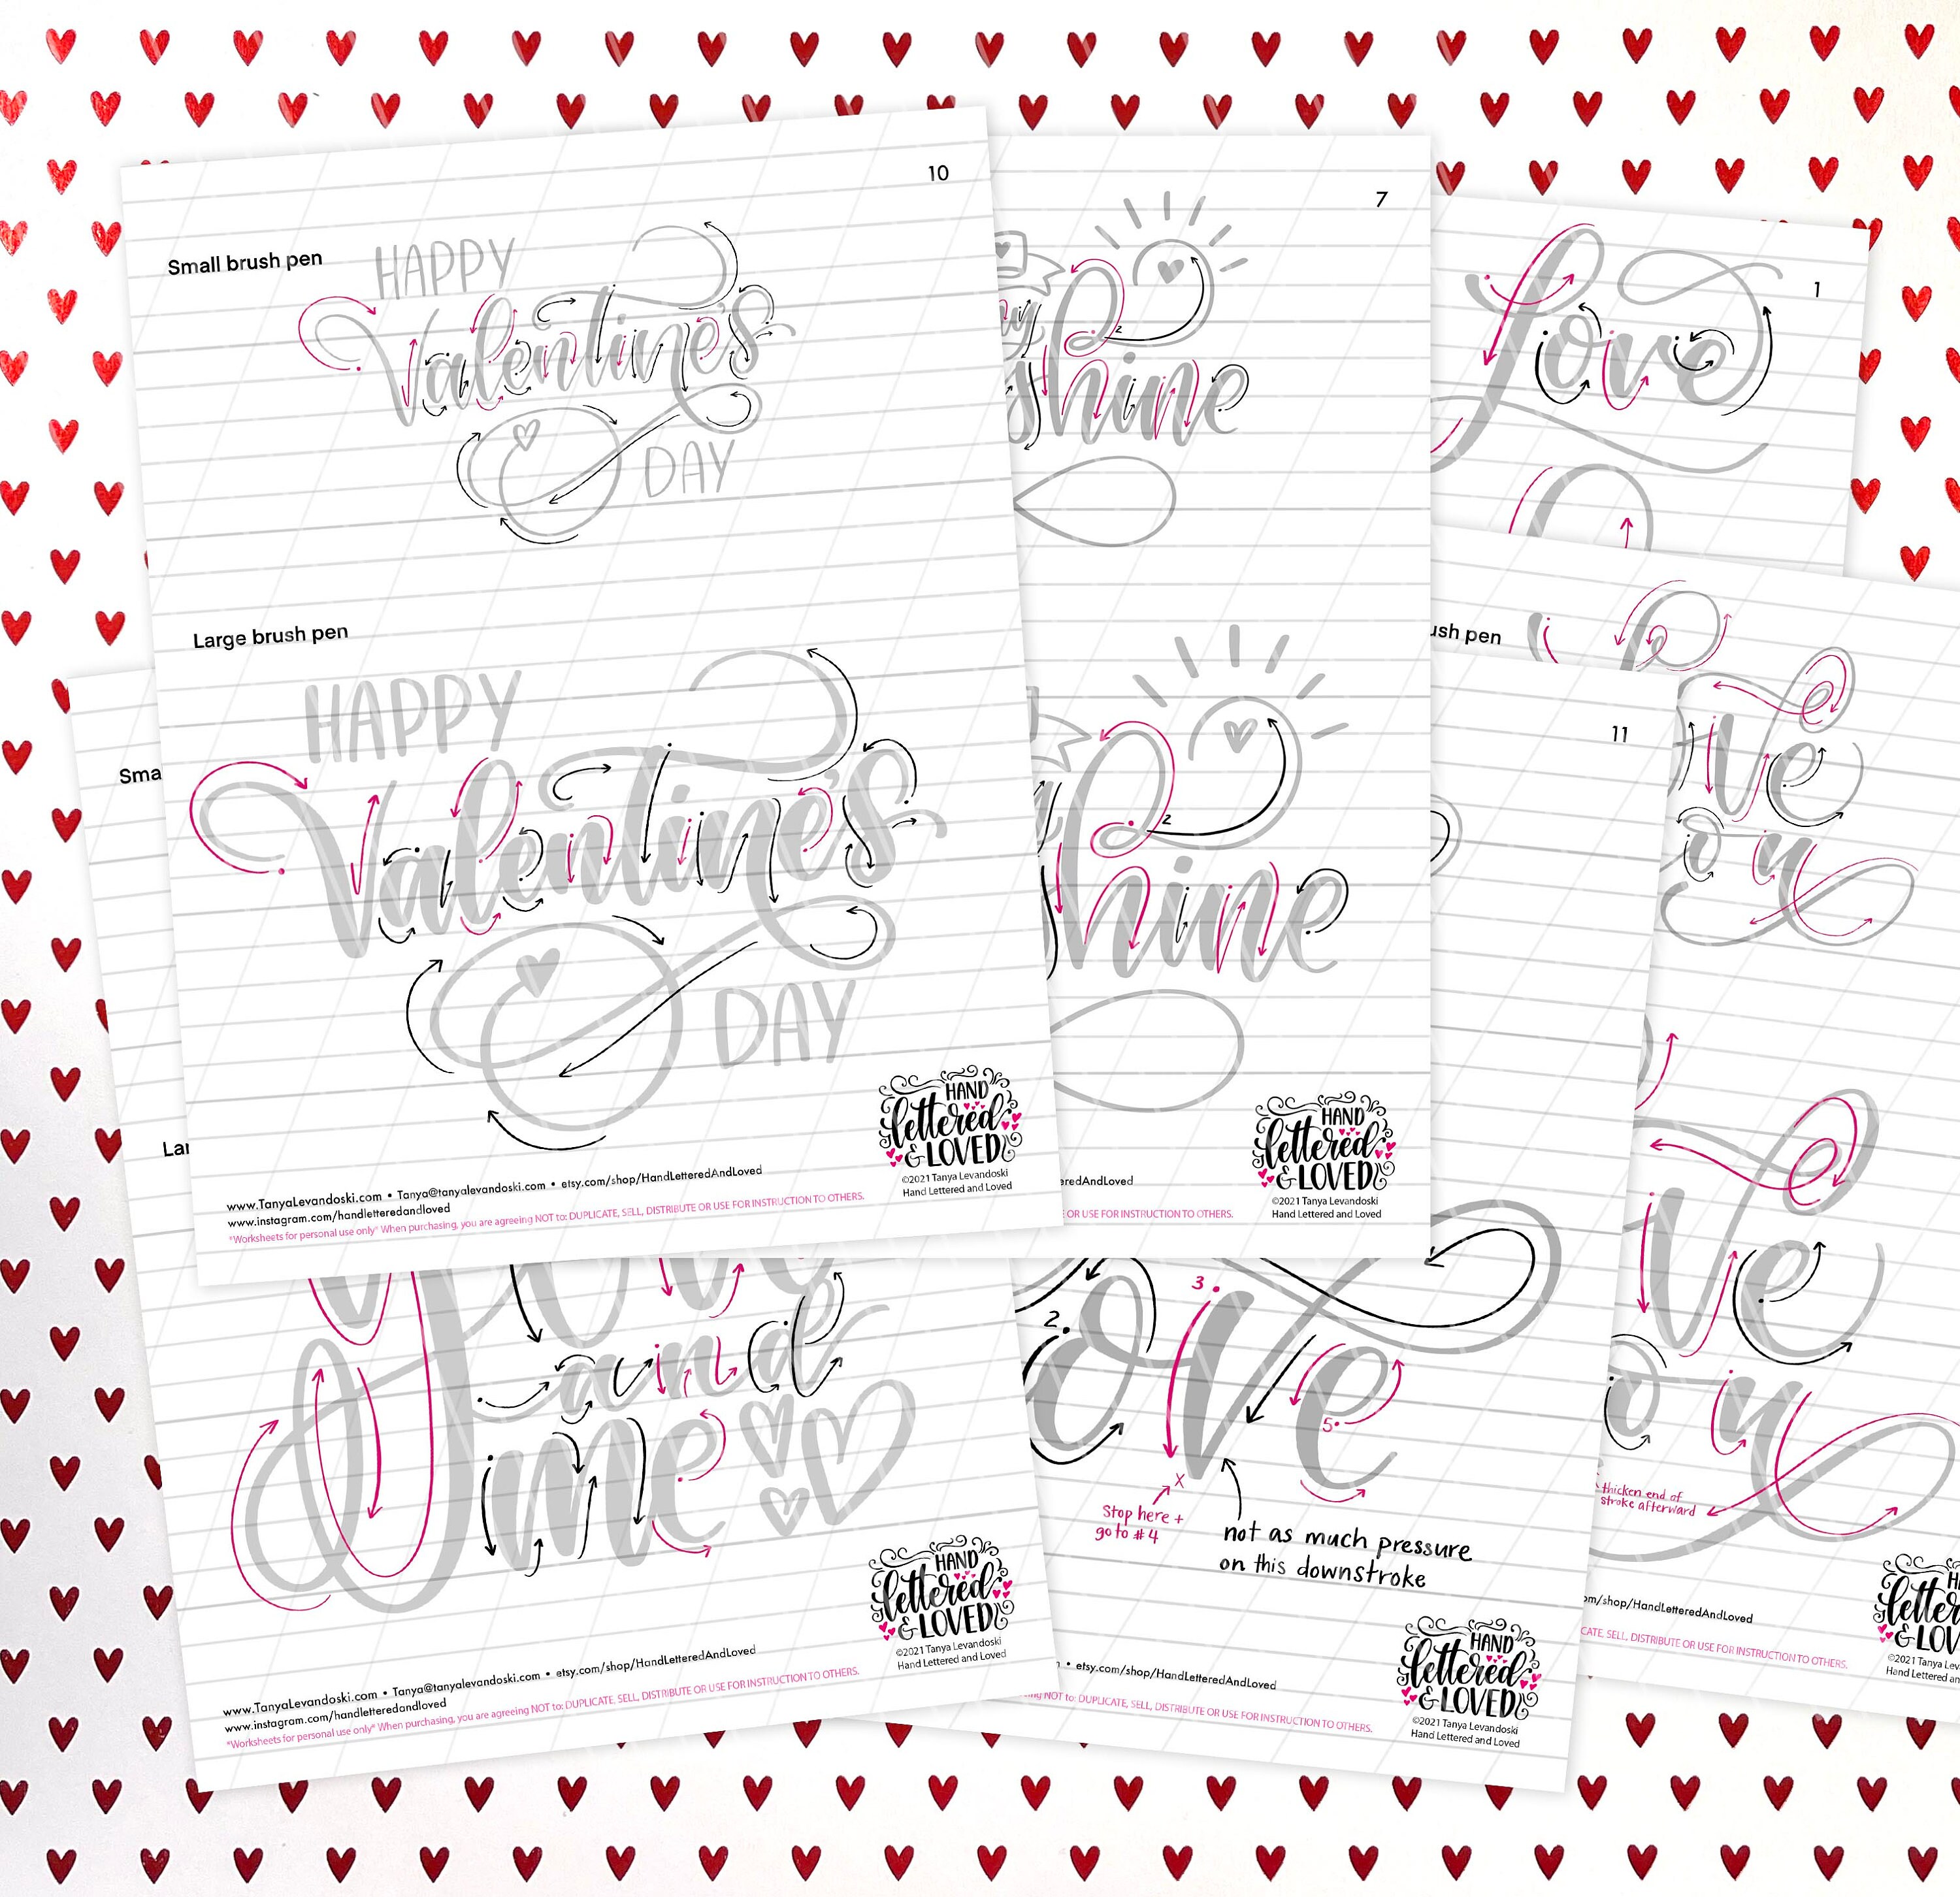 10
Small brush pen
HAPPY
Valentine's
DAY
Large brush pen
HAPPY
Valentine's
DAY
HAND
lettered
& LOVED
©2021 Tanya Levandoski
Hand Lettered and Loved
www.TanyaLevandoski.com • Tanya@tanyalevandoski.com • etsy.com/shop/HandLetteredAndLoved
www.instagram.com/handletteredandloved
*Worksheets for personal use only* When purchasing, you are agreeing NOT to: DUPLICATE, SELL, DISTRIBUTE OR USE FOR INSTRUCTION TO OTHERS.
7
2
shine
2
shine
HAND
lettered
& LOVED
©2021 Tanya Levandoski
Hand Lettered and Loved
eredAndLoved
OR USE FOR INSTRUCTION TO OTHERS.
1
love
ush pen
ve
ou
ve
ou
thicken end of
stroke afterward
om/shop/HandLetteredAndLoved
CATE, SELL, DISTRIBUTE OR USE FOR INSTRUCTION TO OTHERS.
11
2.
3.
ove
5.
Stop here +
go to #4
not as much pressure
on this downstroke
• etsy.com/shop/HandLetteredAndLoved
NOT to: DUPLICATE, SELL, DISTRIBUTE OR USE FOR INSTRUCTION TO OTHERS.
HAND
lettered
& LOVED
©2021 Tanya Levandoski
Hand Lettered and Loved
Sma
Lar
You
and
me
HAND
lettered
& LOVED
©2021 Tanya Levandoski
Hand Lettered and Loved
www.TanyaLevandoski.com • Tanya@tanyalevandoski.com • etsy.com/shop/HandLetteredAndLoved
www.instagram.com/handletteredandloved
*Worksheets for personal use only* When purchasing, you are agreeing NOT to: DUPLICATE, SELL, DISTRIBUTE OR USE FOR INSTRUCTION TO OTHERS.